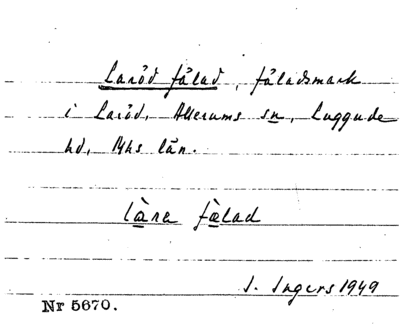 Laröd fälad, fäladsmark
i Laröd, Allerums sn, Luggude
hd, Mhs län.
là̠ra fæ̀lad
I. Ingers 1949
Nr 5670.